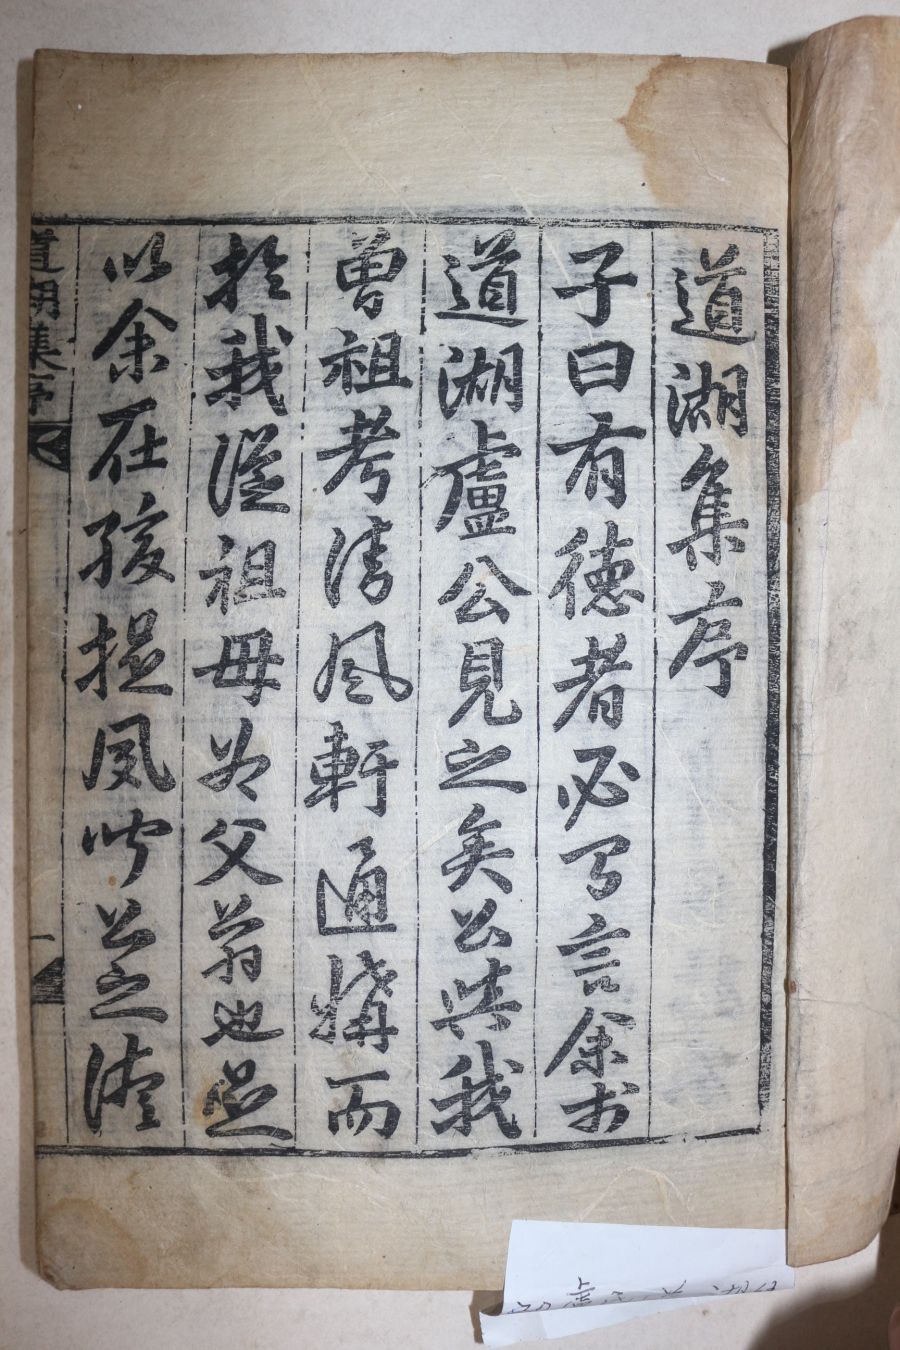 道湖集序
子曰有德者必有言余於
道湖盧公見之矣公與我
曾祖考淸風軒通媾而
於我從祖母爲父翁也是
以余在孩提夙聆公之
道湖集序
一